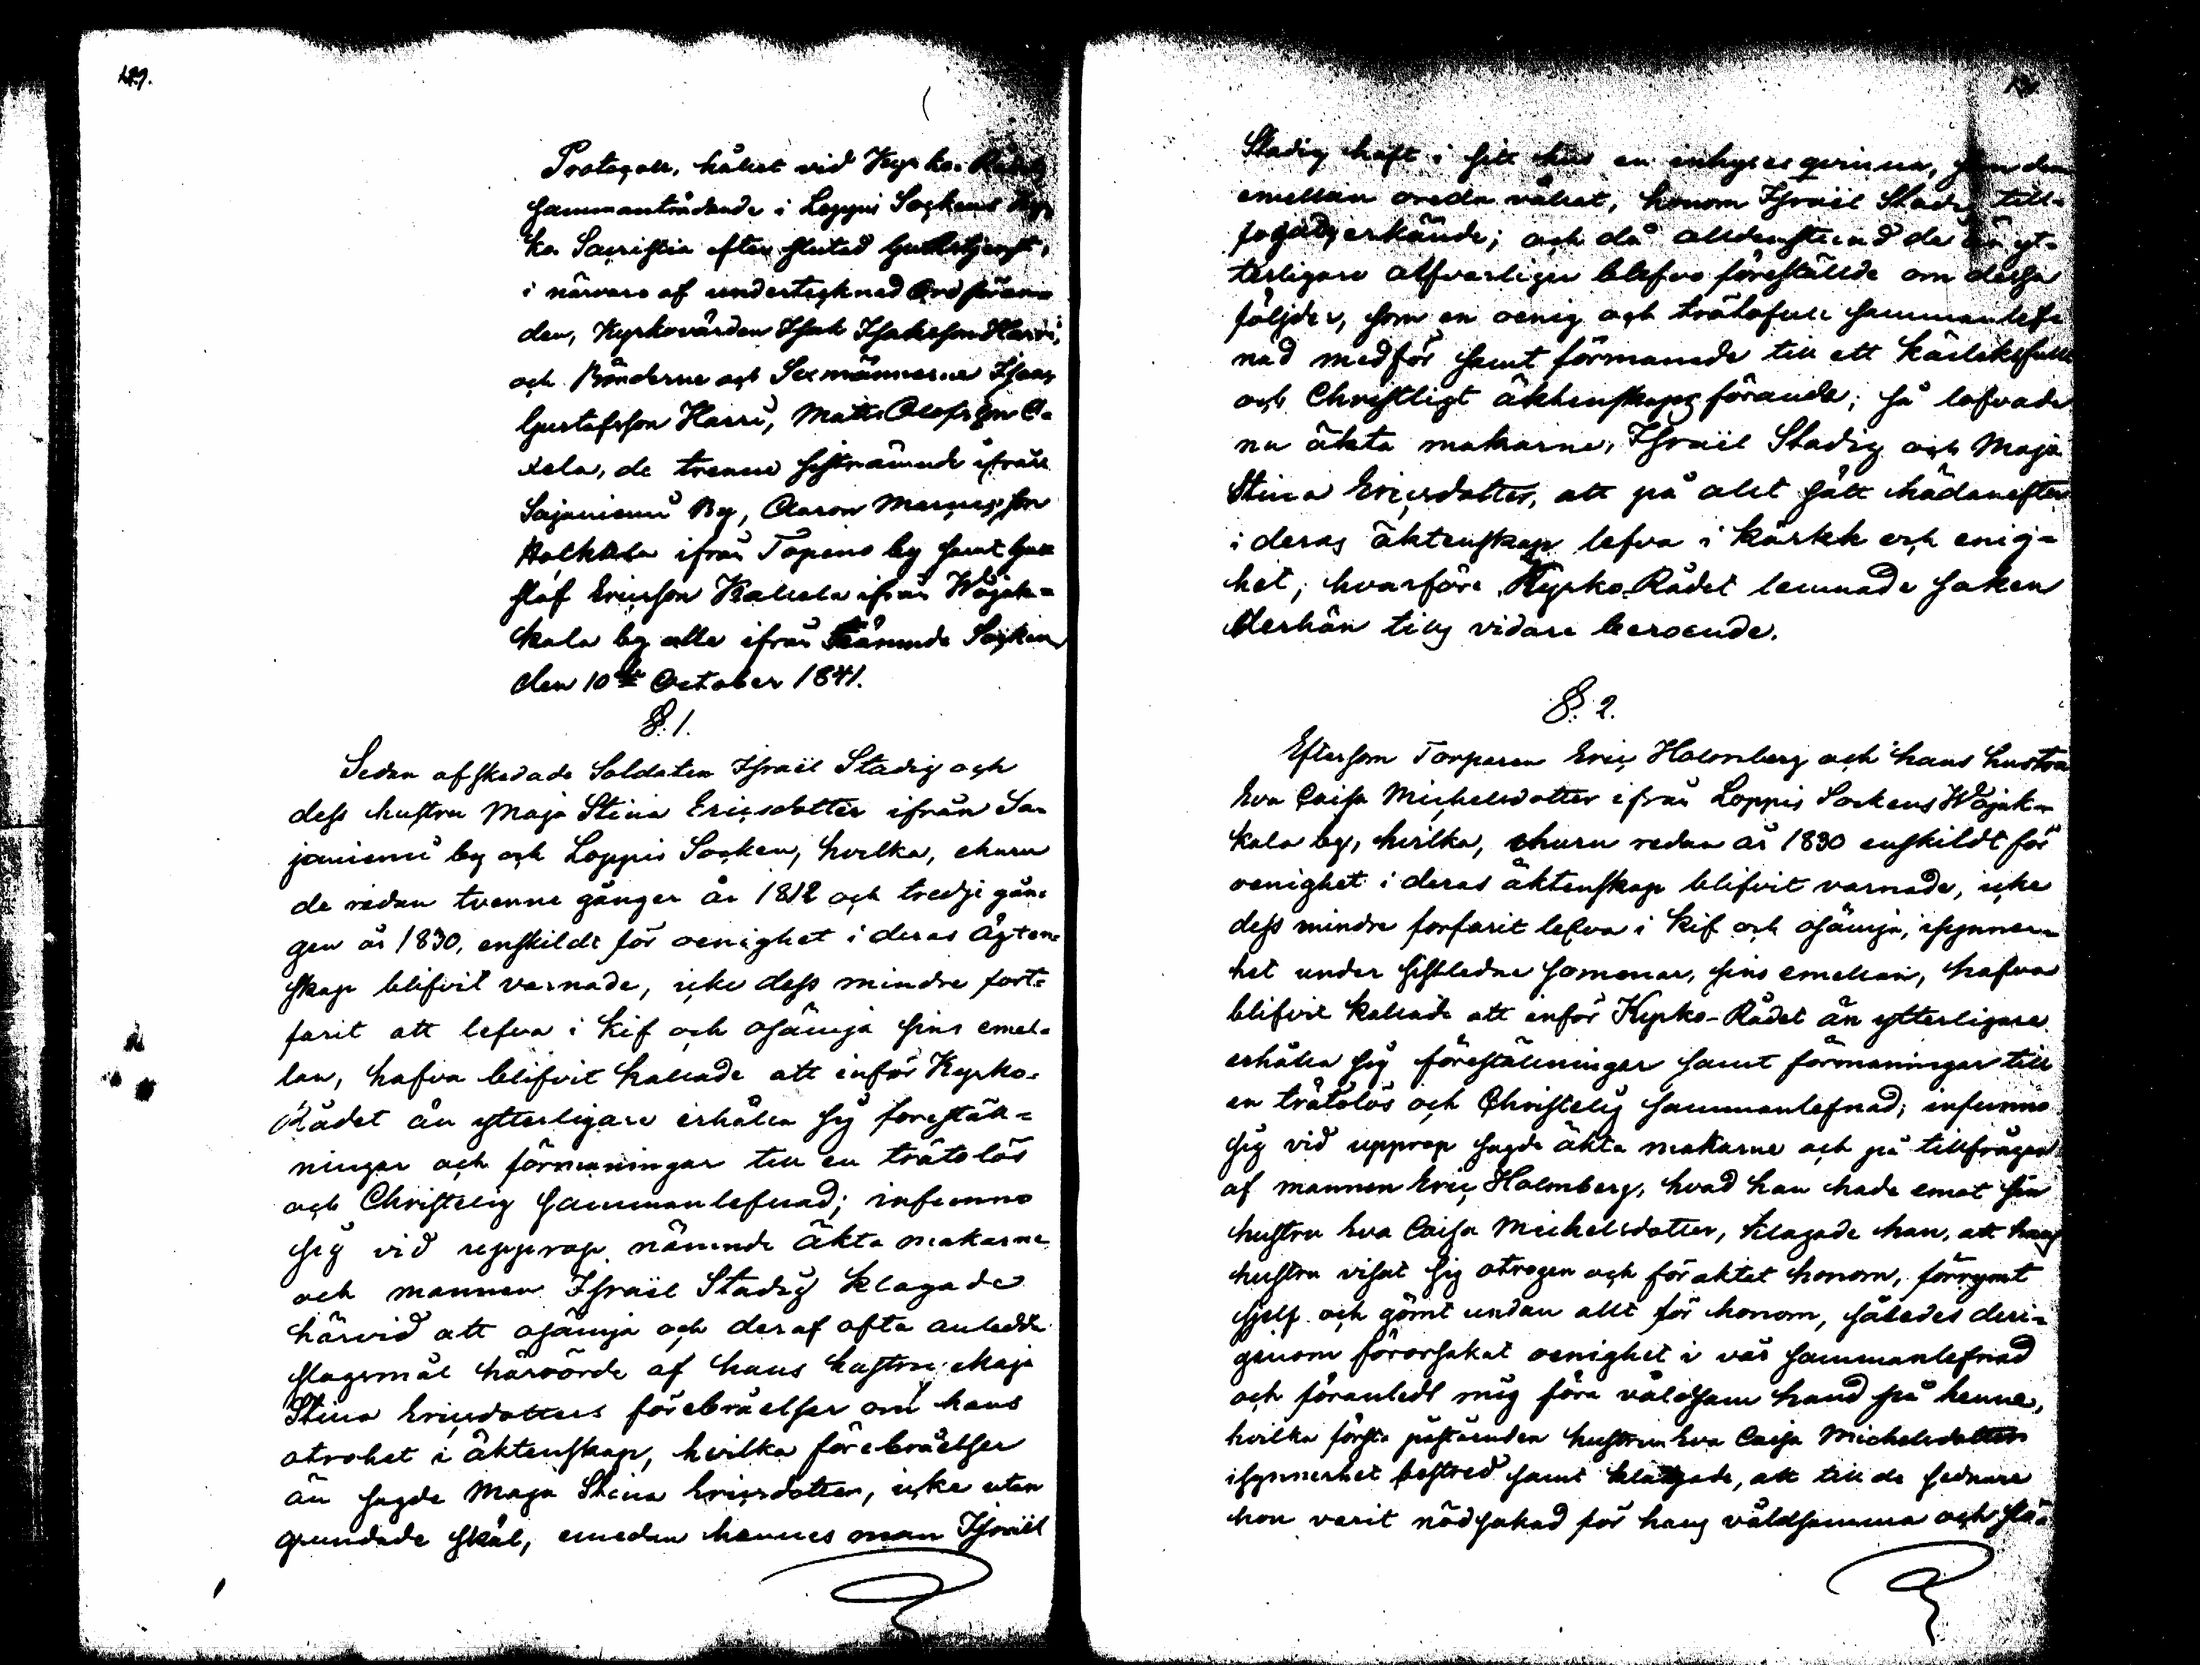 129.
Protocoll, hållet vid Kyrko-Råds
sammanträdande i Loppis Sockens Kyr
ko Sacristia efter slutad Gudstjenst,
i närvaro af undertecknad Ordföran-
den, Kyrkovärden Isak Isaksson Harri,
och Bönderne och Sexmännerne Isaac
Gustafsson Harri, Matts Olofsson O-
xela, de trenne sistnämnde ifrån
Sajaniemi By, Aaron
ifrån Topeno by samt Gus
staf Ericsson Kalela ifrån Wojak-
kala by alle ifrån nämnde Socken
den 10de October 1841.
§. 1.
Sedan afskedade Soldaten Israël Stadig och
dess hustru Maja Stina Ericsdotter ifrån Sa-
janiemi by och Loppis Socken, hvilka, ehuru
de redan tvenne gånger år 1812 och tredje gån-
gen år 1830, enskildt för oenighet i deras Ägten-
skap blifvit varnade, icke dess mindre fort-
farit att lefva i kif och osämja sins emel-
lan, hafva blifvit kallade att inför Kyrko-
Rådet än ytterligare erhålla sig förestäl-
ningar och förmaningar till en trätolös
och Christelig sammanlefnad; infunno
sig vid upprop nämnde äkta makarne
och mannen Israël Stadig klagade
härvid att osämja och deraf ofta anledde
slagsmål härrörde af hans hustru Maja
Stina Ericsdotters förebråelser om hans
otrohet i äktenskap, hvilka förebråelser
än sagde Maja Stina Ericsdotter, icke utan
grundade skäl, emedan hennes man Israël
Stadig haft i sitt hus en inhyses qvinna, som dem
emellan oreda vållat, honom Israël Stadig till-
erkände; och då alldenstund de än yt-
terligare alfvarligen blefvo föreställde om dessa
följder, som en oenig och trätofull sammanlef-
nad medför samt förmanade till ett kärleksfullt
och Christligt äktenskaps förande; så lofvade
nu äkta makarne, Israël Stadig och Maja
Stina Ericsdotter, att på alet sått hädanefter
i deras äktenskap lefva i kärlek och enig-
het; hvarföre Kyrko-Rådet lemnade saken
derhän tills vidare beroende.
§. 2.
Eftersom Torparen Eric Holmberg och hans hustru
Eva Caisa Michelsdotter ifrån Loppis Sockens Wojak-
kala by, hvilka, ehuru redan år 1830 enskildt för
oenighet i deras äktenskap blifvit varnade, icke
dess mindre forfarit lefva i kif och osämja, isynner-
het under sistledne sommar, sins emellan, hafva
blifvit kallade att inför Kyrko-Rådet än ytterligare
erhålla sig föreställningar samt förmaningar till
en trätolös och Christelig sammanlefnad; infunno
sig vid upprop sagde äkta makarne och på tillfrågan
af mannen Eric Holmberg, hvad han hade emot sin
hustru Eva Caisa Michelsdotter, klagade han, att hans
hustru visat sig otrogen och föraktat honom, förrymt
sjelf och gömt undan allt för honom, således deri-
genom förorsakat oenighet i vår sammanlefnad
och föranledt mig föra våldsam hand på henne,
hvilka första påståenden hustrun Eva Caisa Michelsdotter
isynnerhet bestred samt klagade, att till de sednare
hon varit nödsakad för hans våldsamma och